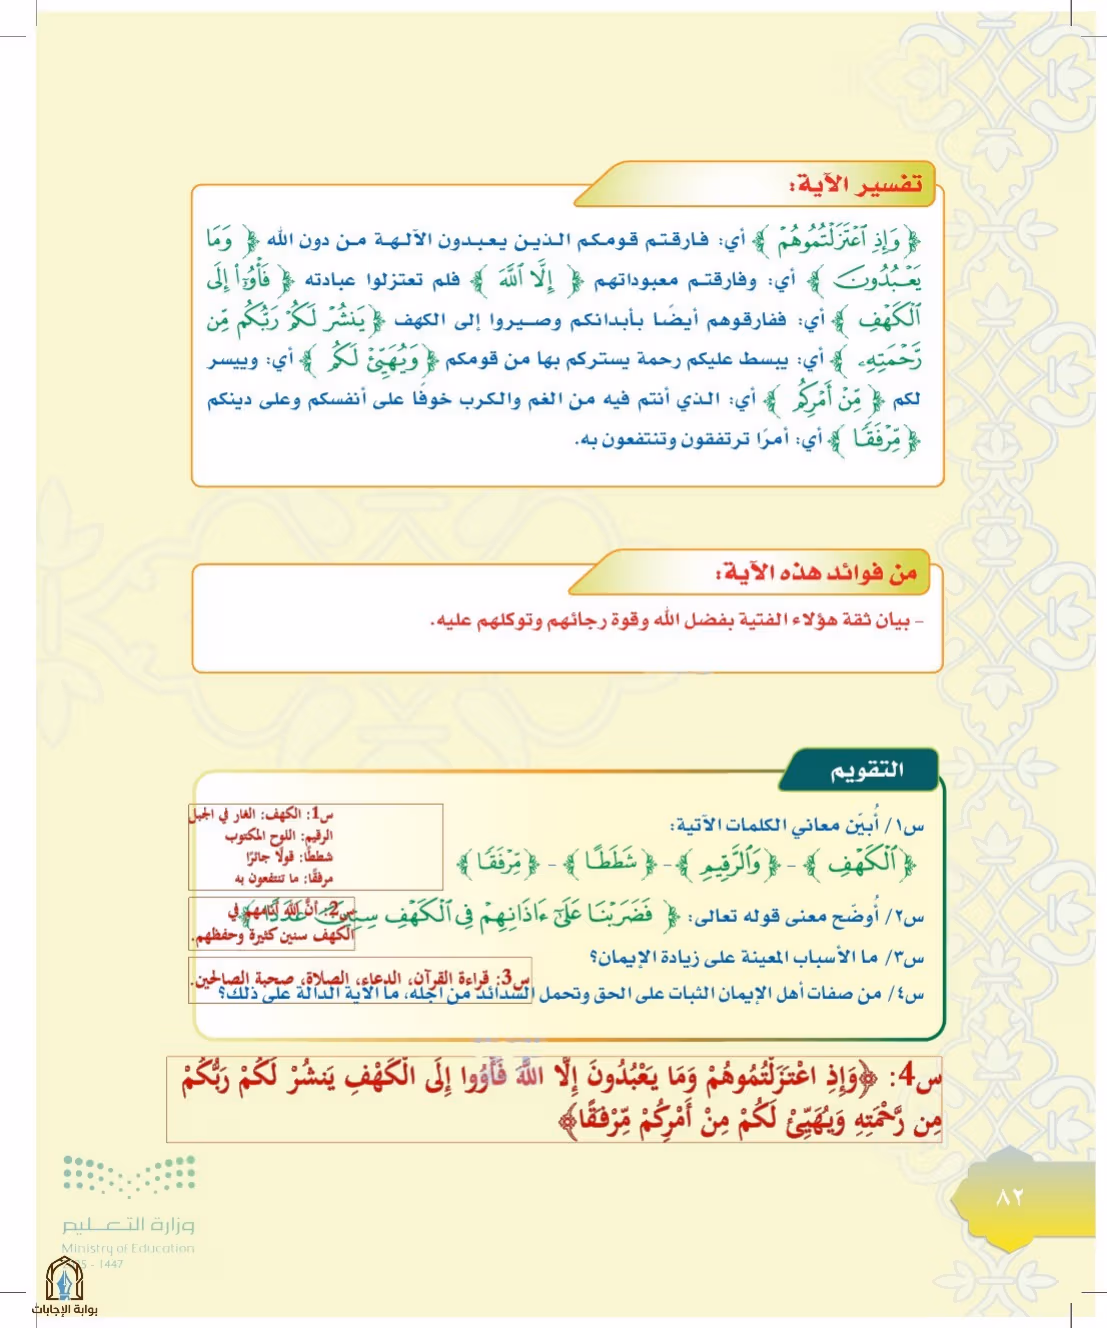 تفسير الآية:
﴿ وَإِذِ ٱعْتَزَلْتُمُوهُمْ ﴾ أي: فارقتم قومكم الذين يعبدون الآلهة من دون الله ﴿ وَمَا
يَعْبُدُونَ ﴾ أي: وفارقتم معبوداتهم ﴿ إِلَّا ٱللَّهَ ﴾ فلم تعتزلوا عبادته ﴿ فَأْوُۥٓاْ إِلَى
ٱلْكَهْفِ ﴾ أي: ففارقوهم أيضًا بأبدانكم وصيروا إلى الكهف ﴿ يَنشُرْ لَكُمْ رَبُّكُم مِّن
رَّحْمَتِهِۦ ﴾ أي: يبسط عليكم رحمة يستركم بها من قومكم ﴿ وَيُهَيِّئْ لَكُم ﴾ أي: وييسر
لكم ﴿ مِّنْ أَمْرِكُم ﴾ أي: الذي أنتم فيه من الغم والكرب خوفًا على أنفسكم وعلى دينكم
﴿ مِّرْفَقًا ﴾ أي: أمرًا ترتفقون وتنتفعون به.
من فوائد هذه الآية:
- بيان ثقة هؤلاء الفتية بفضل الله وقوة رجائهم وتوكلهم عليه.
التقويم
س١/ أُبيّن معاني الكلمات الآتية:
﴿ ٱلْكَهْفِ ﴾ - ﴿ وَٱلرَّقِيمِ ﴾ - ﴿ شَطَطًا ﴾ - ﴿ مِّرْفَقًا ﴾
س1: الكهف: الغار في الجبل
الرقيم: اللوح المكتوب
شططًا: قولًا جائرًا
مرفقًا: ما تنتفعون به
س٢/ أُوضّح معنى قوله تعالى: ﴿ فَضَرَبْنَا عَلَىٰٓ ءَاذَانِهِمْ فِى ٱلْكَهْفِ سِنِينَ عَدَدًا ﴾
س2: أنَّ الله أنامهم في
الكهف سنين كثيرة وحفظهم.
س٣/ ما الأسباب المعينة على زيادة الإيمان؟
س3: قراءة القرآن، الدعاء، الصلاة، صحبة الصالحين.
س٤/ من صفات أهل الإيمان الثبات على الحق وتحمل الشدائد من أجله، ما الآية الدالة على ذلك؟
س4: ﴿وَإِذِ اعْتَزَلْتُمُوهُمْ وَمَا يَعْبُدُونَ إِلَّا اللَّهَ فَأْوُوا إِلَى الْكَهْفِ يَنشُرْ لَكُمْ رَبُّكُمْ
مِن رَّحْمَتِهِ وَيُهَيِّئْ لَكُمْ مِنْ أَمْرِكُمْ مِّرْفَقًا﴾
٨٢
وزارة التعليم
Ministry of Education
- 1447
بوابة الإجابات